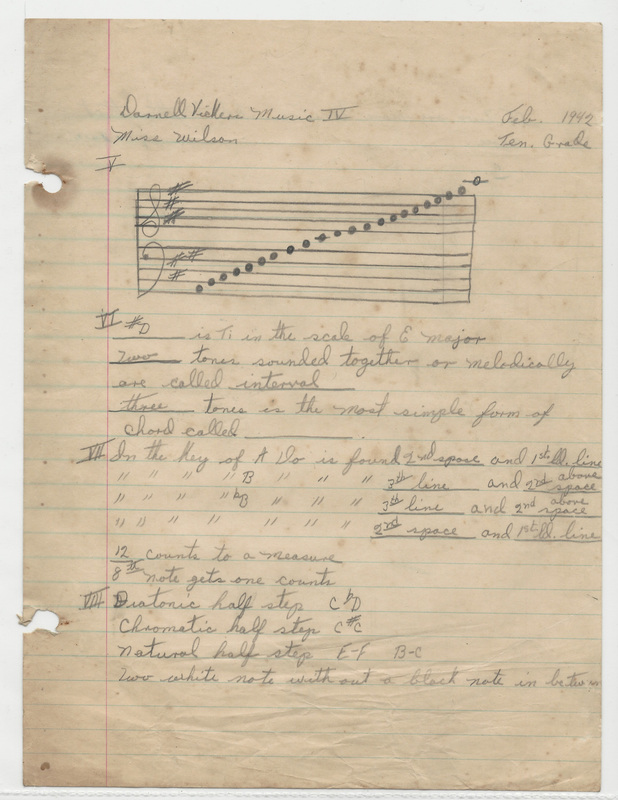 Darnell Vickers Music IV Feb. 1942
Miss Wilson Ten. Grade
V
VI #D is Ti in the scale of E major
Two tones sounded together or melodically
are called interval
three tones is the most simple form of
chord called
VII In the Key of A Do is found 2nd space and 1st ld. line
" " " " B " " " 3th line and 2nd above space
" " " " bB " " " 3th line and 2nd above space
" " " " " " " 2nd space and 1st ld. line
12 counts to a measure
8th note gets one counts
VIII Diatonic half step C bD
Chromatic half step C #C
Natural half step E-F B-C
Two white note with out a black note in between